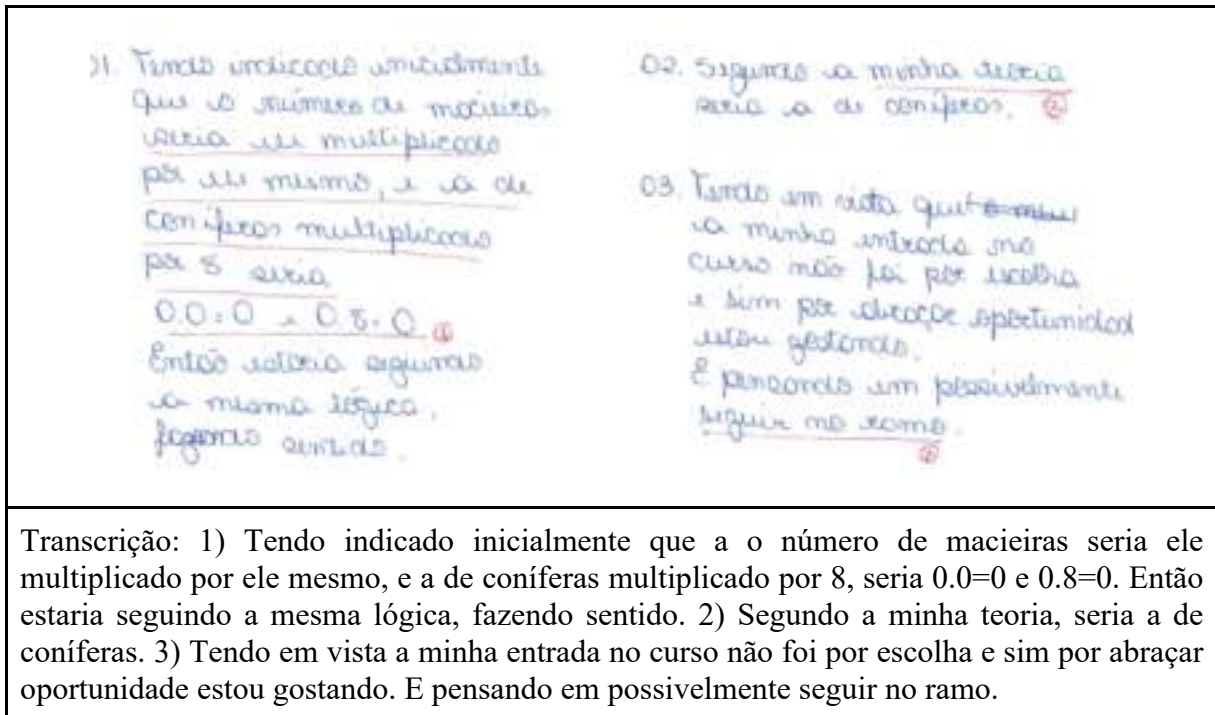 01. Tendo indicado inicialmente
que o número de macieiras
seria ele multiplicado
por ele mesmo, e a de
coníferas multiplicado
por 8 seria
0.0=0 e 0.8=0
Então estaria seguindo
a mesma lógica,
fazendo sentido.
02. Segundo a minha teoria
seria a de coníferas. 2
03. Tendo em vista que
a minha entrada no
curso não foi por escolha
e sim por abraçar oportunidad
estou gostando.
E pensando em possivelmente
seguir no ramo.
Transcrição: 1) Tendo indicado inicialmente que a o número de macieiras seria ele
multiplicado por ele mesmo, e a de coníferas multiplicado por 8, seria 0.0=0 e 0.8=0. Então
estaria seguindo a mesma lógica, fazendo sentido. 2) Segundo a minha teoria, seria a de
coníferas. 3) Tendo em vista a minha entrada no curso não foi por escolha e sim por abraçar
oportunidade estou gostando. E pensando em possivelmente seguir no ramo.